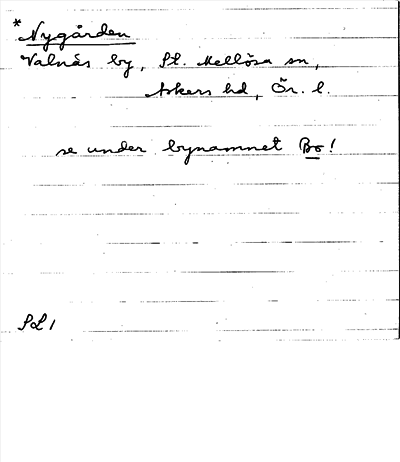 *Nygården
Valnäs by, St. Mellösa sn,
Askers hd, Ör. l.
se under bynamnet Bo!